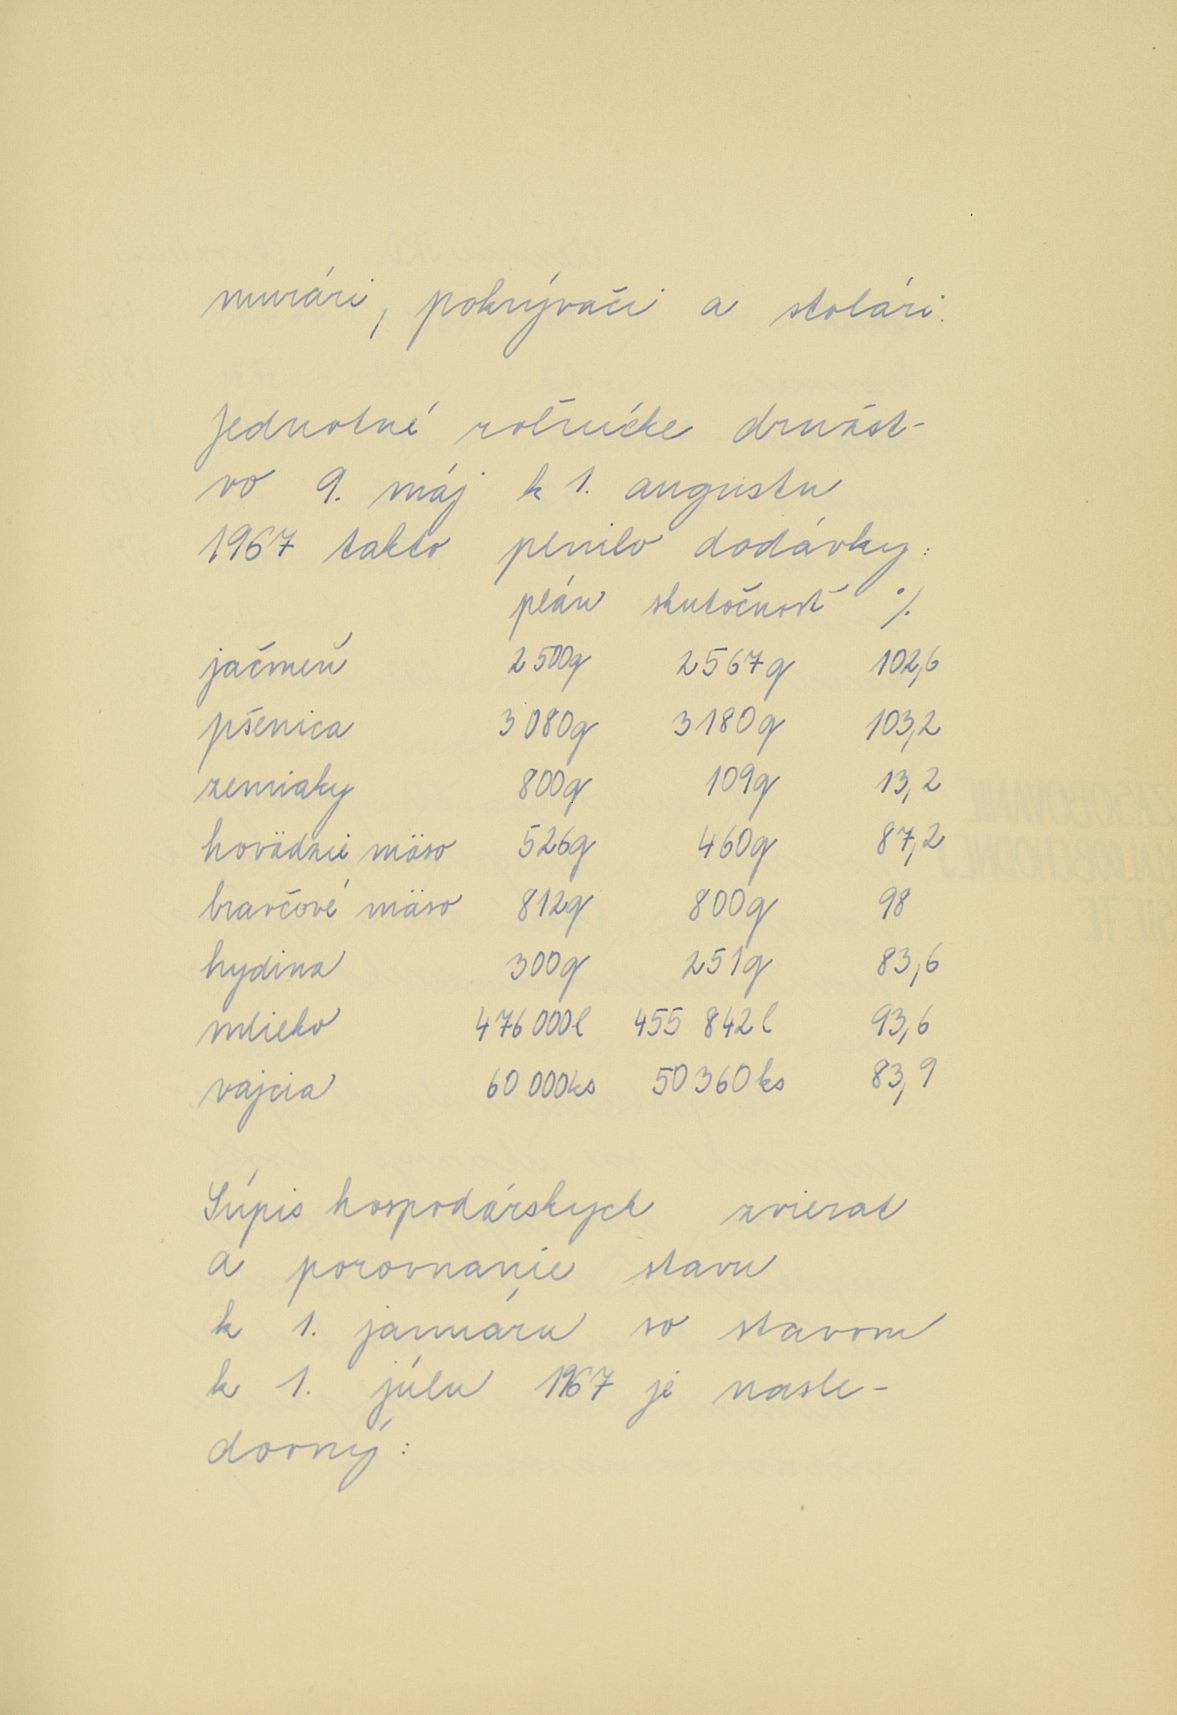 murári, pokrývači a stolári.
Jednotné roľnícke družst-
vo 9. máj k 1. augustu
1967 takto plnilo dodávky:
plán skutočnosť %
jačmeň 2 500q 2567q 102,6
pšenica 3 080q 3180q 103,2
zemiaky 800q 109q 13,2
hovädzie mäso 526q 460q 87,2
bravčové mäso 812q 800q 98
hydina 300q 251q 83,6
mlieko 476 000l 455 842l 93,6
vajcia 60 000ks 50 360ks 83,9
Súpis hospodárskych zvierat
a porovnanie stavu
k 1. januáru so stavom
k 1. júlu 1967 je nasle-
dovný: